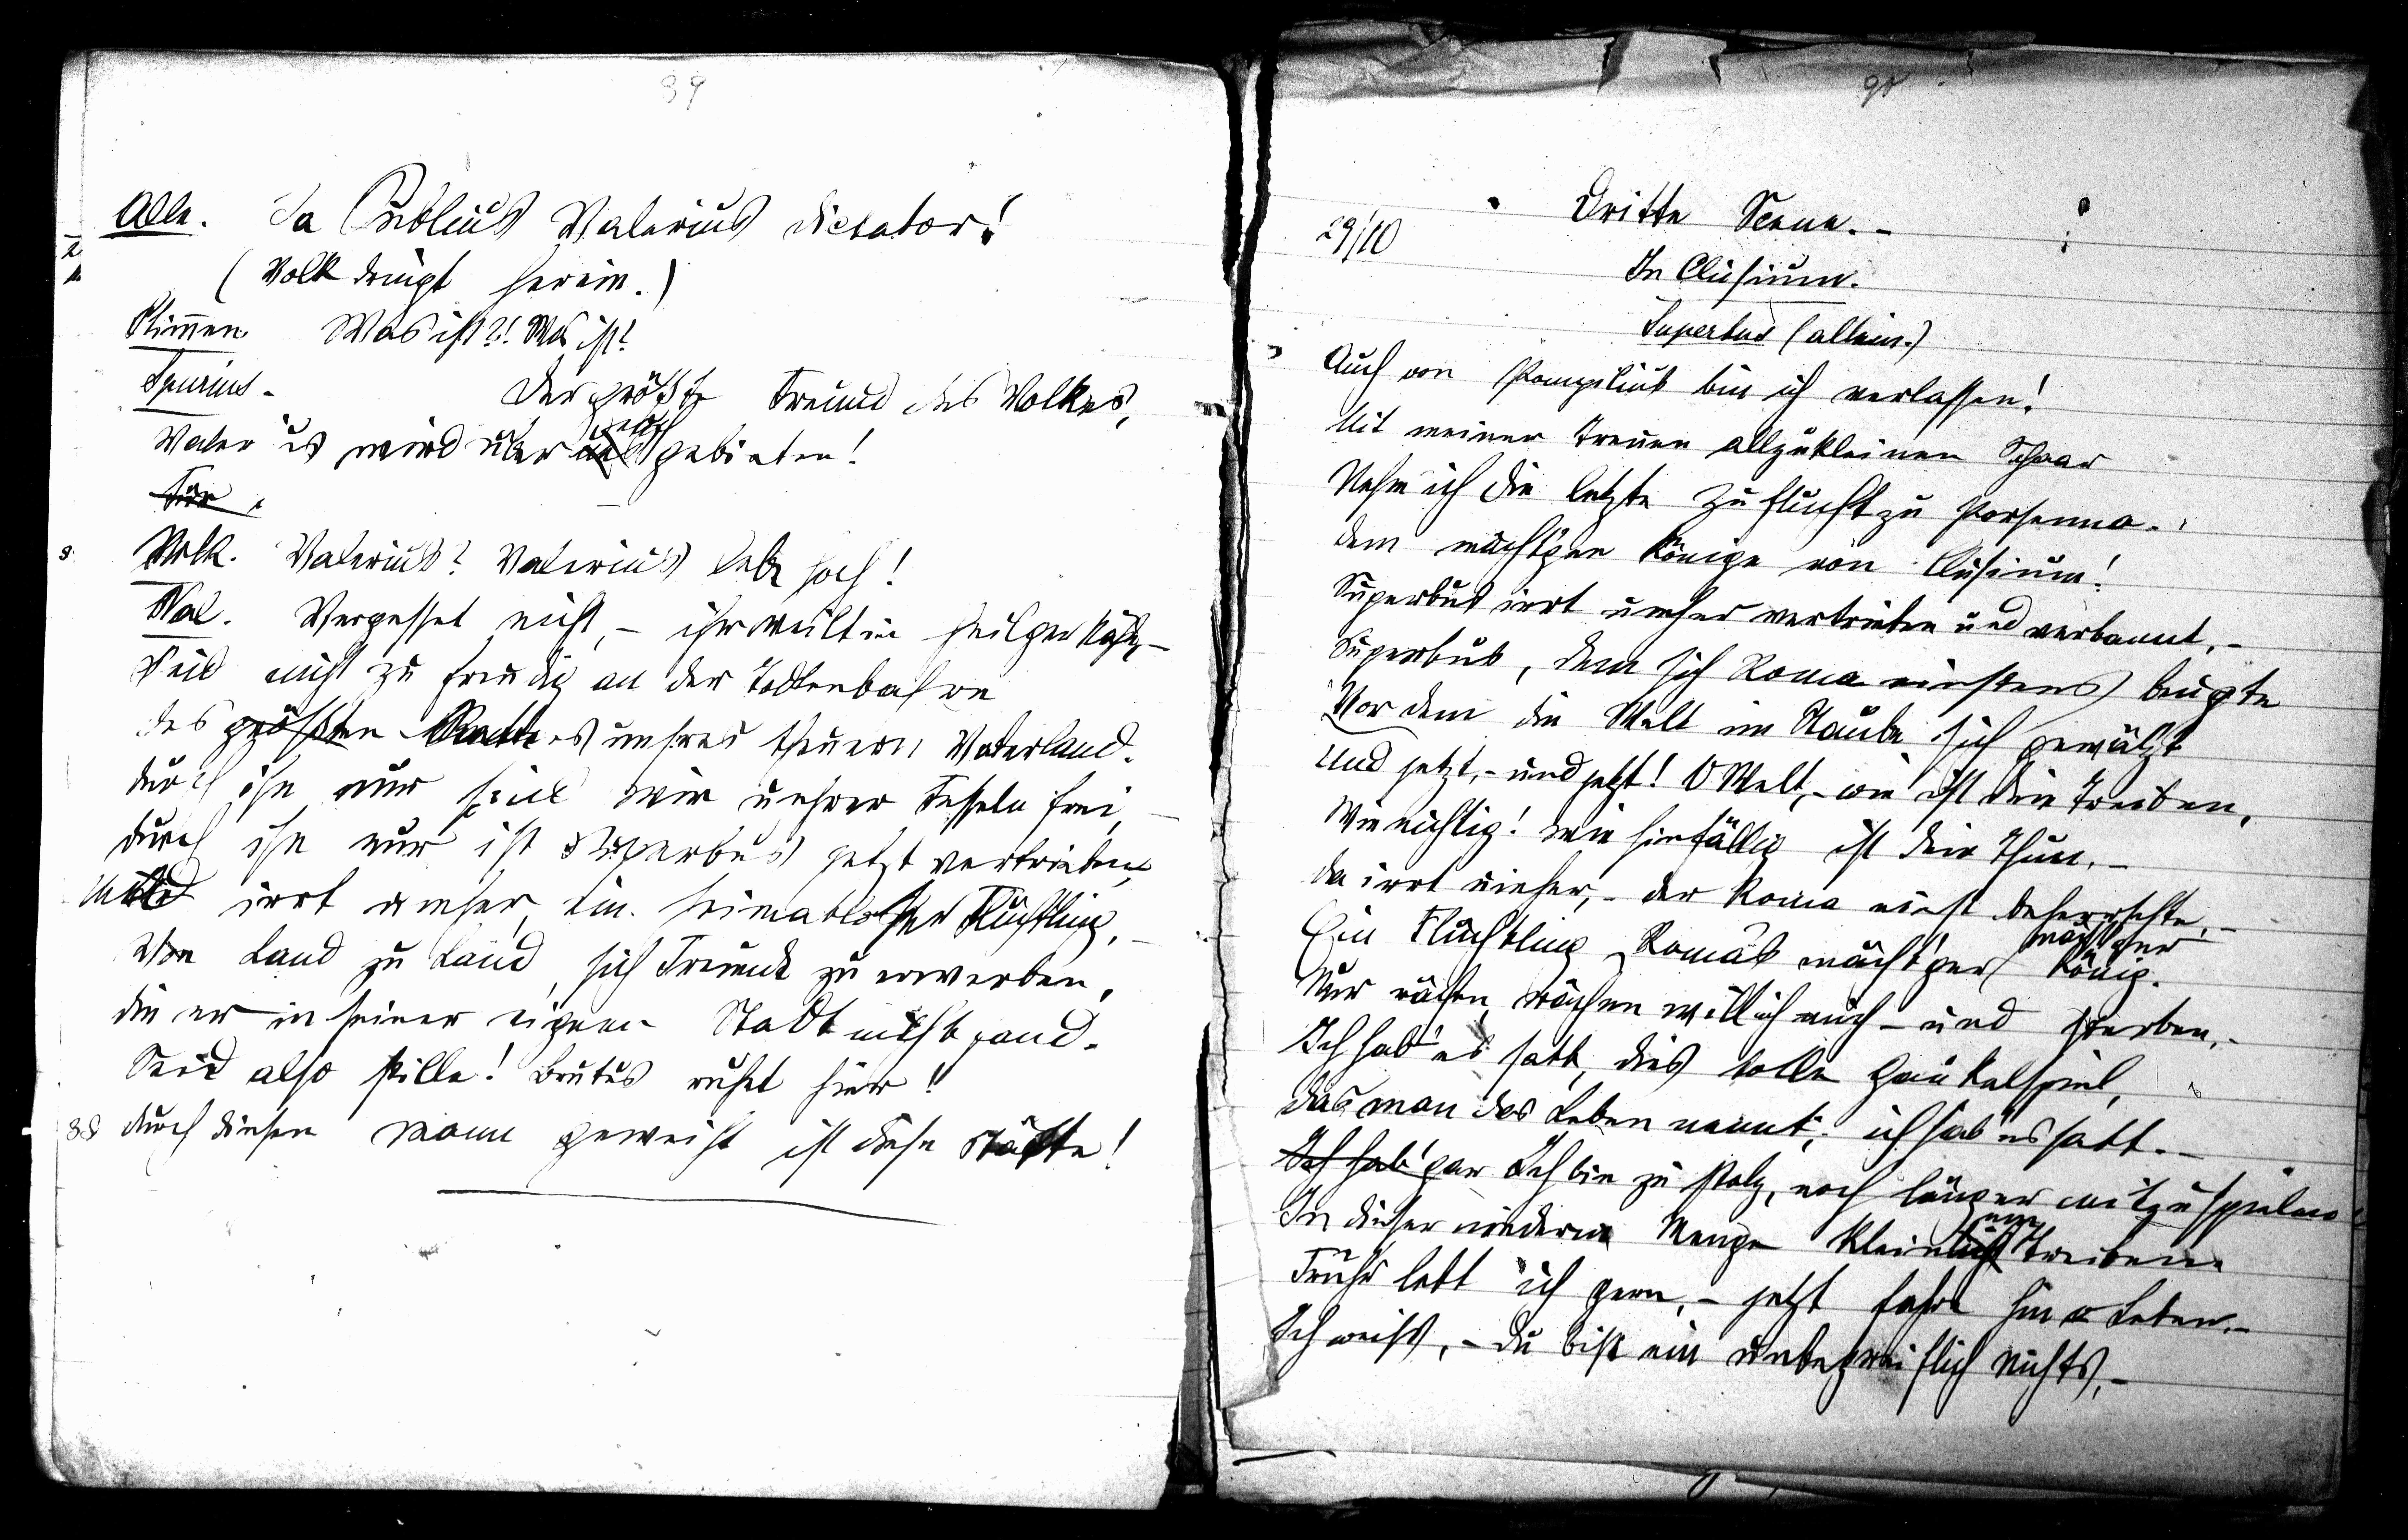 89
Alle. Ja Publius Valerius Dictator!
(Volk dringt herein.)
Stimmen. Was ist?! Was ist?
Spurius. Der größte Freund des Volkes,
Valerius wird über euch gebieten!
Für
Volk. Valerius? Valerius lebe hoch!
Val. Vergesset nicht, – ihr weilt in heilger Nähe, –
Seid nicht zu freudig an der Todtenbahre
des größten unsres theuern Vaterland.
durch ihn nur sind wir unsrer Fesseln frei, –
durch ihn nur ist Superbus jetzt vertrieben,
Und irrt umher, ein heimatloser Flüchtling, –
Von Land zu Land, sich Freunde zu erwerben,
die er in seiner eignen Stadt nicht fand.
Seid also stille! Brutus ruhet hier!
88 durch diesen Mann geweiht ist diese Stätte!
90
29/10 Dritte Scene. –
In Clusium.
Superbus (allein.)
Auch von Pompilius bin ich verlassen!
Mit meiner treuen allzukleinen Schaar
Nehm ich die letzte Zuflucht zu Porsenna.
dem mächt'gen Könige von Clusium!
Superbus irrt umher vertrieben und verbannt, –
Superbus, dem sich Roma einstens beugte
Vor dem die Welt im Staube sich gewälzt
Und jetzt, – und jetzt! O Welt, – wie ist dein Treiben,
Wie nichtig! wie hinfällig ist dein Thun. –
da irrt umher, – der Roma einst beherrschte, –
mächt'ger
Ein Flüchtling Roma's mächt'ger König.
Nur rächen, rächen will ich mich – und sterben. –
Ich hab' es satt, dies tolle Gaukelspiel,
das man das Leben nennt; ich hab' es satt. –
Ich hab' gar Ich bin zu stolz, noch länger mitzuspielen
In dieser niedern Menge Treiben.
Früher lebt ich gern, – jetzt fahre hin o Leben. –
Ich weiß, – du bist ein unbegreiflich Nichts, –